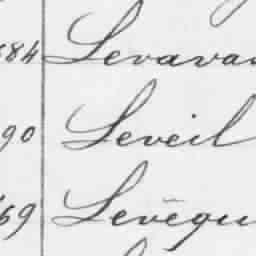 684 Levava
90 Leveil
69 Levêqu